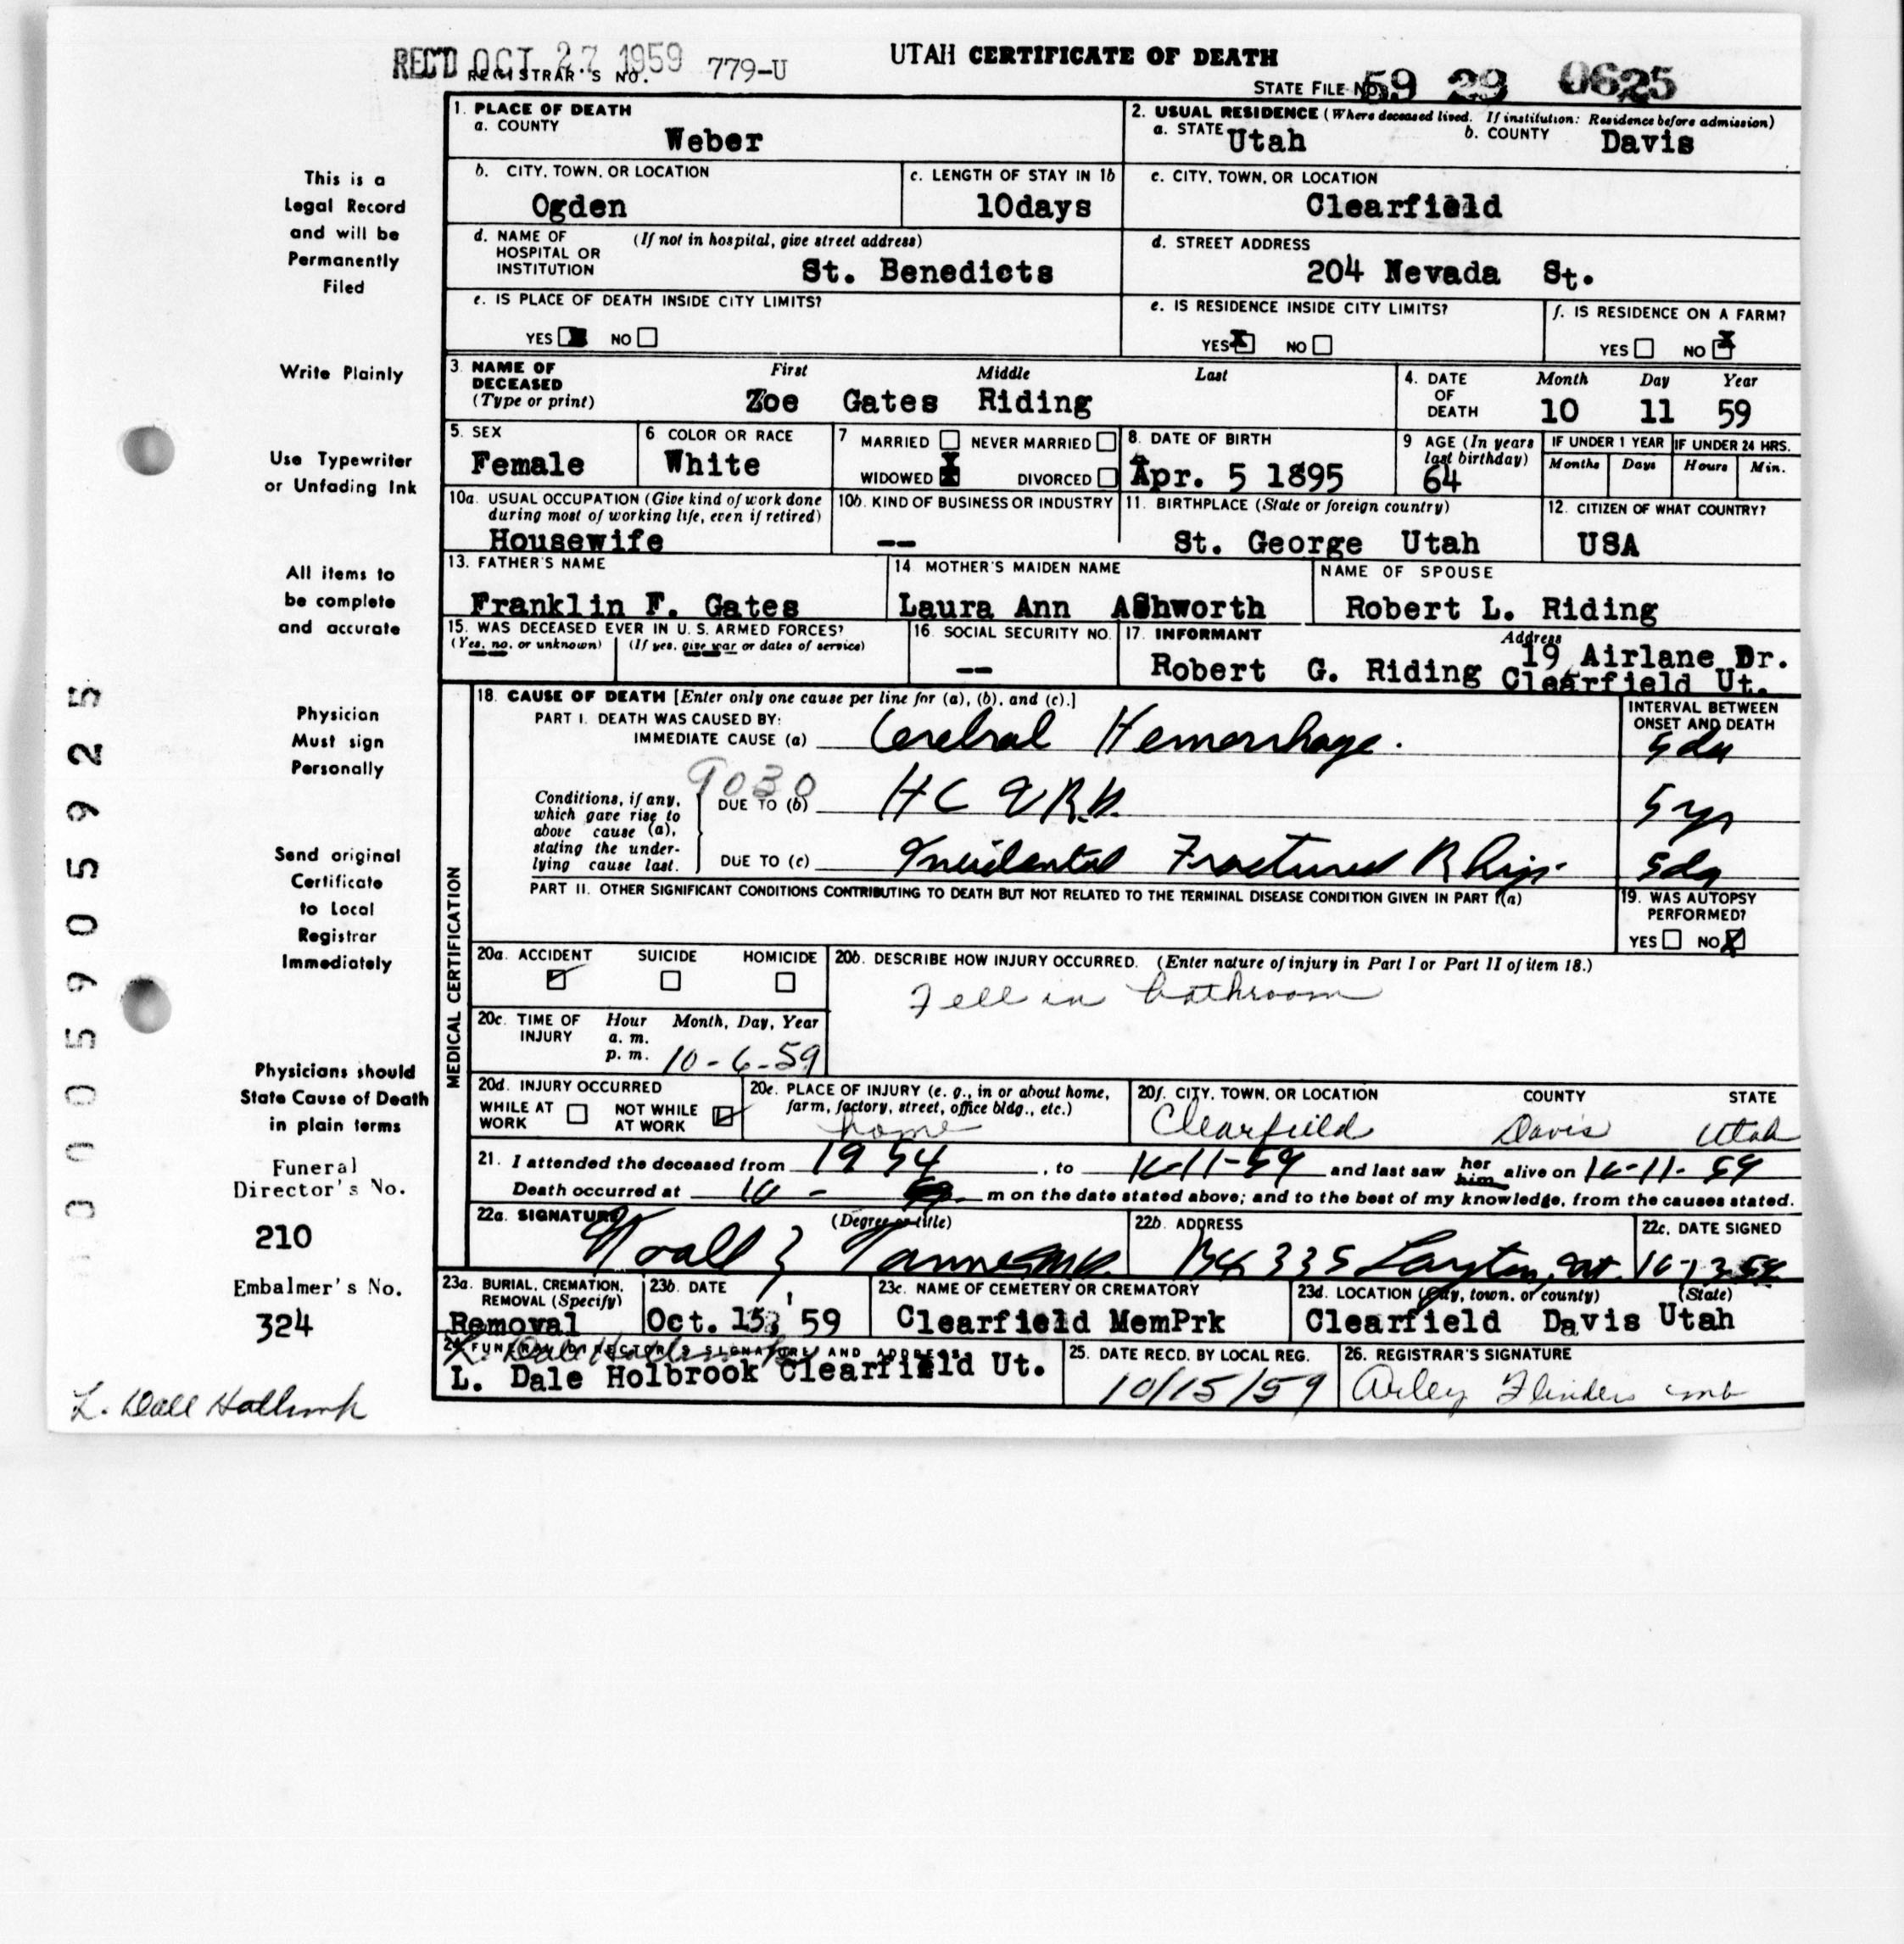 REC'D OCT 27 1959 779-U
REGISTRAR'S NO.
UTAH CERTIFICATE OF DEATH
STATE FILE NO. 59 29 0625
This is a
Legal Record
and will be
Permanently
Filed
Write Plainly
Use Typewriter
or Unfading Ink
All items to
be complete
and accurate
Physician
Must sign
Personally
Send original
Certificate
to Local
Registrar
Immediately
Physicians should
State Cause of Death
in plain terms
Funeral
Director's No.
210
Embalmer's No.
324
1. PLACE OF DEATH
a. COUNTY
Weber
2. USUAL RESIDENCE (Where deceased lived. If institution: Residence before admission)
a. STATE Utah b. COUNTY Davis
b. CITY, TOWN, OR LOCATION
Ogden
c. LENGTH OF STAY IN 1b
10days
c. CITY, TOWN, OR LOCATION
Clearfield
d. NAME OF (If not in hospital, give street address)
HOSPITAL OR
INSTITUTION St. Benedicts
d. STREET ADDRESS
204 Nevada St.
e. IS PLACE OF DEATH INSIDE CITY LIMITS?
YES NO
e. IS RESIDENCE INSIDE CITY LIMITS?
YES X NO
f. IS RESIDENCE ON A FARM?
YES NO X
3. NAME OF DECEASED (Type or print)
First Middle Last
Zoe Gates Riding
4. DATE OF DEATH
Month Day Year
10 11 59
5. SEX
Female
6 COLOR OR RACE
White
7 MARRIED NEVER MARRIED
WIDOWED X DIVORCED
8. DATE OF BIRTH
Apr. 5 1895
9 AGE (In years last birthday)
64
IF UNDER 1 YEAR IF UNDER 24 HRS.
Months Days Hours Min.
10a. USUAL OCCUPATION (Give kind of work done
during most of working life, even if retired)
Housewife
10b. KIND OF BUSINESS OR INDUSTRY
--
11. BIRTHPLACE (State or foreign country)
St. George Utah
12. CITIZEN OF WHAT COUNTRY?
USA
13. FATHER'S NAME
Franklin F. Gates
14 MOTHER'S MAIDEN NAME
Laura Ann AShworth
NAME OF SPOUSE
Robert L. Riding
15. WAS DECEASED EVER IN U. S. ARMED FORCES?
(Yes, no, or unknown) (If yes, give war or dates of service)
16. SOCIAL SECURITY NO.
--
17. INFORMANT Address
Robert G. Riding 19 Airlane Dr.
Clearfield Ut.
MEDICAL CERTIFICATION
18. CAUSE OF DEATH [Enter only one cause per line for (a), (b), and (c).]
INTERVAL BETWEEN
ONSET AND DEATH
PART I. DEATH WAS CAUSED BY:
IMMEDIATE CAUSE (a) Cerebral Hemorrhage.
9030
Conditions, if any,
which gave rise to
above cause (a),
stating the under-
lying cause last.
DUE TO (b) 5 yr
DUE TO (c) Incidental Fractured R hip
PART II. OTHER SIGNIFICANT CONDITIONS CONTRIBUTING TO DEATH BUT NOT RELATED TO THE TERMINAL DISEASE CONDITION GIVEN IN PART I(a)
19. WAS AUTOPSY
PERFORMED?
YES NO X
20a. ACCIDENT SUICIDE HOMICIDE
20b. DESCRIBE HOW INJURY OCCURRED. (Enter nature of injury in Part I or Part II of item 18.)
Fell in bathroom
20c. TIME OF INJURY Hour Month, Day, Year
a. m.
p. m. 10-6-59
20d. INJURY OCCURRED
WHILE AT WORK NOT WHILE AT WORK
20e. PLACE OF INJURY (e. g., in or about home,
farm, factory, street, office bldg., etc.)
home
20f. CITY, TOWN, OR LOCATION COUNTY STATE
Clearfield Davis Utah
21. I attended the deceased from 1954, to 10-11-59 and last saw her him alive on 10-11-59
Death occurred at 10 - m on the date stated above; and to the best of my knowledge, from the causes stated.
22a. SIGNATURE (Degree or title)
22b. ADDRESS
Bx 335 Layton, Ut.
22c. DATE SIGNED
23a. BURIAL, CREMATION,
REMOVAL (Specify)
Removal
23b. DATE
Oct. 15, '59
23c. NAME OF CEMETERY OR CREMATORY
Clearfield MemPrk
23d. LOCATION (City, town, or county) (State)
Clearfield Davis Utah
24. FUNERAL DIRECTOR'S SIGNATURE AND ADDRESS
L. Dale Holbrook
L. Dale Holbrook Clearfield Ut.
25. DATE RECD. BY LOCAL REG.
10/15/59
26. REGISTRAR'S SIGNATURE
Arley Flinders
L. Dale Holbrook